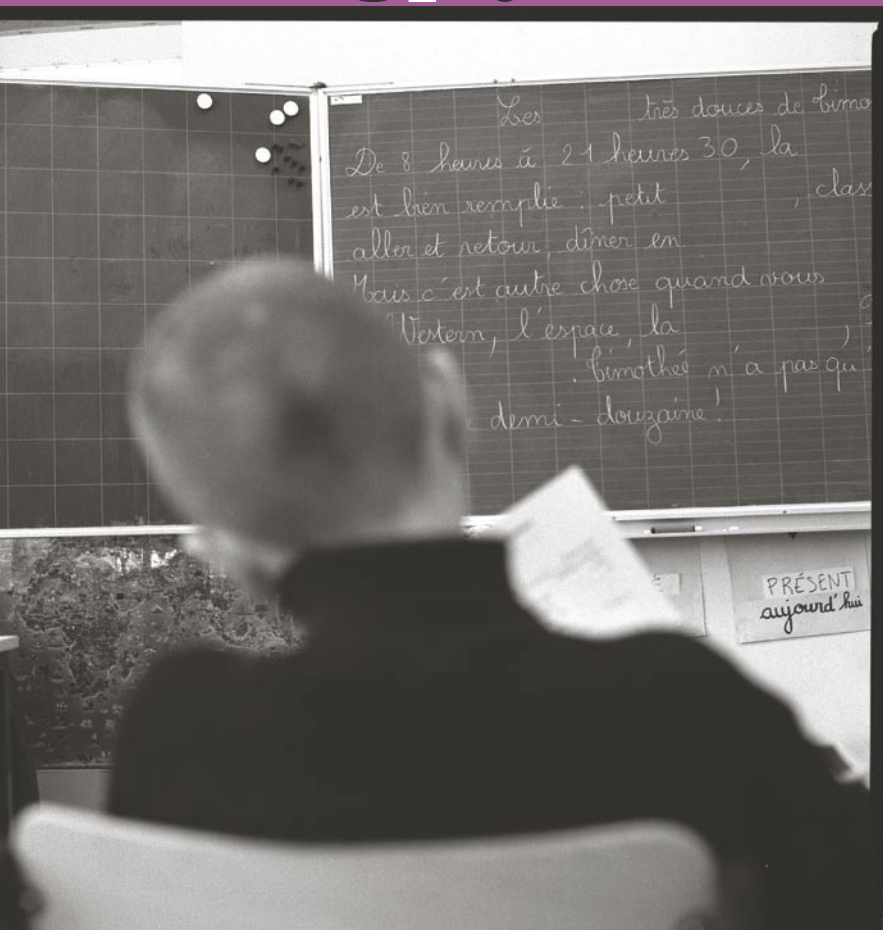 Les très douces de Timo
De 8 heures à 21 heures 30, la
est bien remplie : petit , clas
aller et retour, dîner en
Mais c'est autre chose quand vous
Western, l'espace, la ,
. Timothée n'a pas qu'
demi-douzaine !
PRÉSENT
aujourd'hui